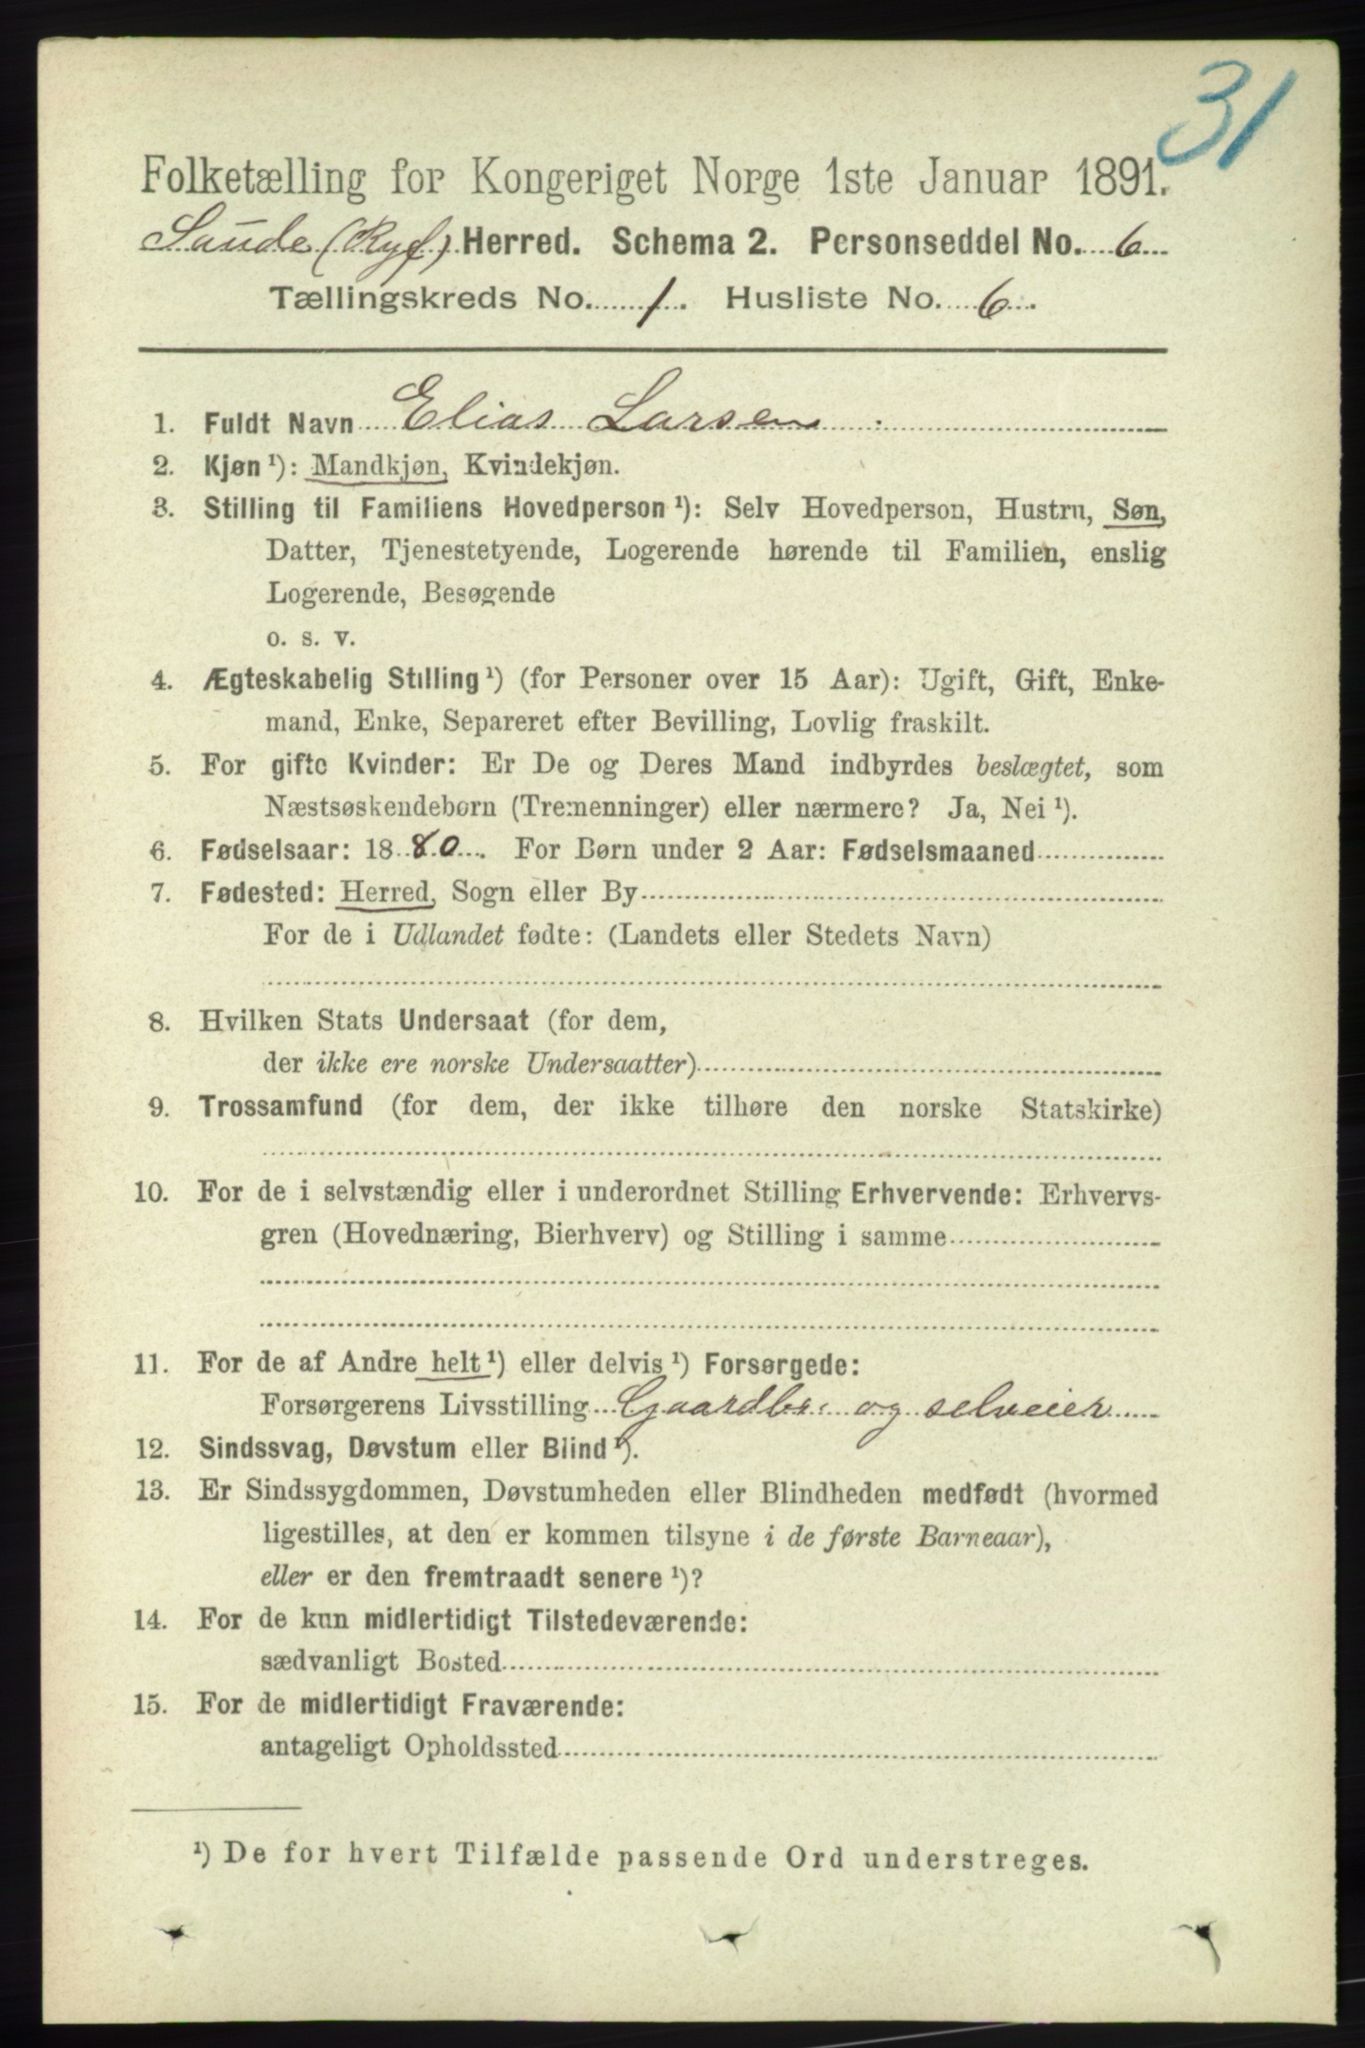 31
Folketælling for Kongeriget Norge 1ste Januar 1891.
Saude (Ryf) Herred. Schema 2. Personseddel No. 6
Tællingskreds No. 1. Husliste No. 6.
1. Fuldt Navn Elias Larsen
2. Kjøn¹): Mandkjøn, Kvindekjøn.
3. Stilling til Familiens Hovedperson¹): Selv Hovedperson, Hustru, Søn,
Datter, Tjenestetyende, Logerende hørende til Familien, enslig
Logerende, Besøgende
o. s. v.
4. Ægteskabelig Stilling¹) (for Personer over 15 Aar): Ugift, Gift, Enke-
mand, Enke, Separeret efter Bevilling, Lovlig fraskilt.
5. For gifte Kvinder: Er De og Deres Mand indbyrdes beslægtet, som
Næstsøskendebørn (Tremenninger) eller nærmere? Ja, Nei¹).
6. Fødselsaar: 1880. For Børn under 2 Aar: Fødselsmaaned
7. Fødested: Herred, Sogn eller By
For de i Udlandet fødte: (Landets eller Stedets Navn)
8. Hvilken Stats Undersaat (for dem,
der ikke ere norske Undersaatter)
9. Trossamfund (for dem, der ikke tilhøre den norske Statskirke)
10. For de i selvstændig eller i underordnet Stilling Erhvervende: Erhvervs-
gren (Hovednæring, Bierhverv) og Stilling i samme
11. For de af Andre helt¹) eller delvis¹) Forsørgede:
Forsørgerens Livsstilling Gaardbr. og selveier
12. Sindssvag, Døvstum eller Blind¹).
13. Er Sindssygdommen, Døvstumheden eller Blindheden medfødt (hvormed
ligestilles, at den er kommen tilsyne i de første Barneaar),
eller er den fremtraadt senere¹)?
14. For de kun midlertidigt Tilstedeværende:
sædvanligt Bosted
15. For de midlertidigt Fraværende:
antageligt Opholdssted
¹) De for hvert Tilfælde passende Ord understreges.